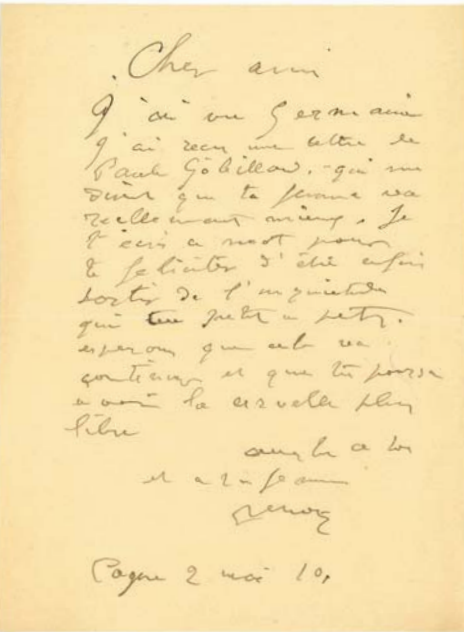 Cher ami
J'ai vu Germaine
J'ai reçu une lettre de
Paule Gobillard, qui me
disent que ta femme va
reellement mieux. Je
t'ecris ce mot pour
te feliciter d'être enfin
sortir de l'inquietude
qui tue petit a petit.
esperons que cela va
continuer et que tu pourra
avoir la cervelle plus
libre
amitie a toi
et a ta femme
Renoir
Cagnes 2 mai 10.